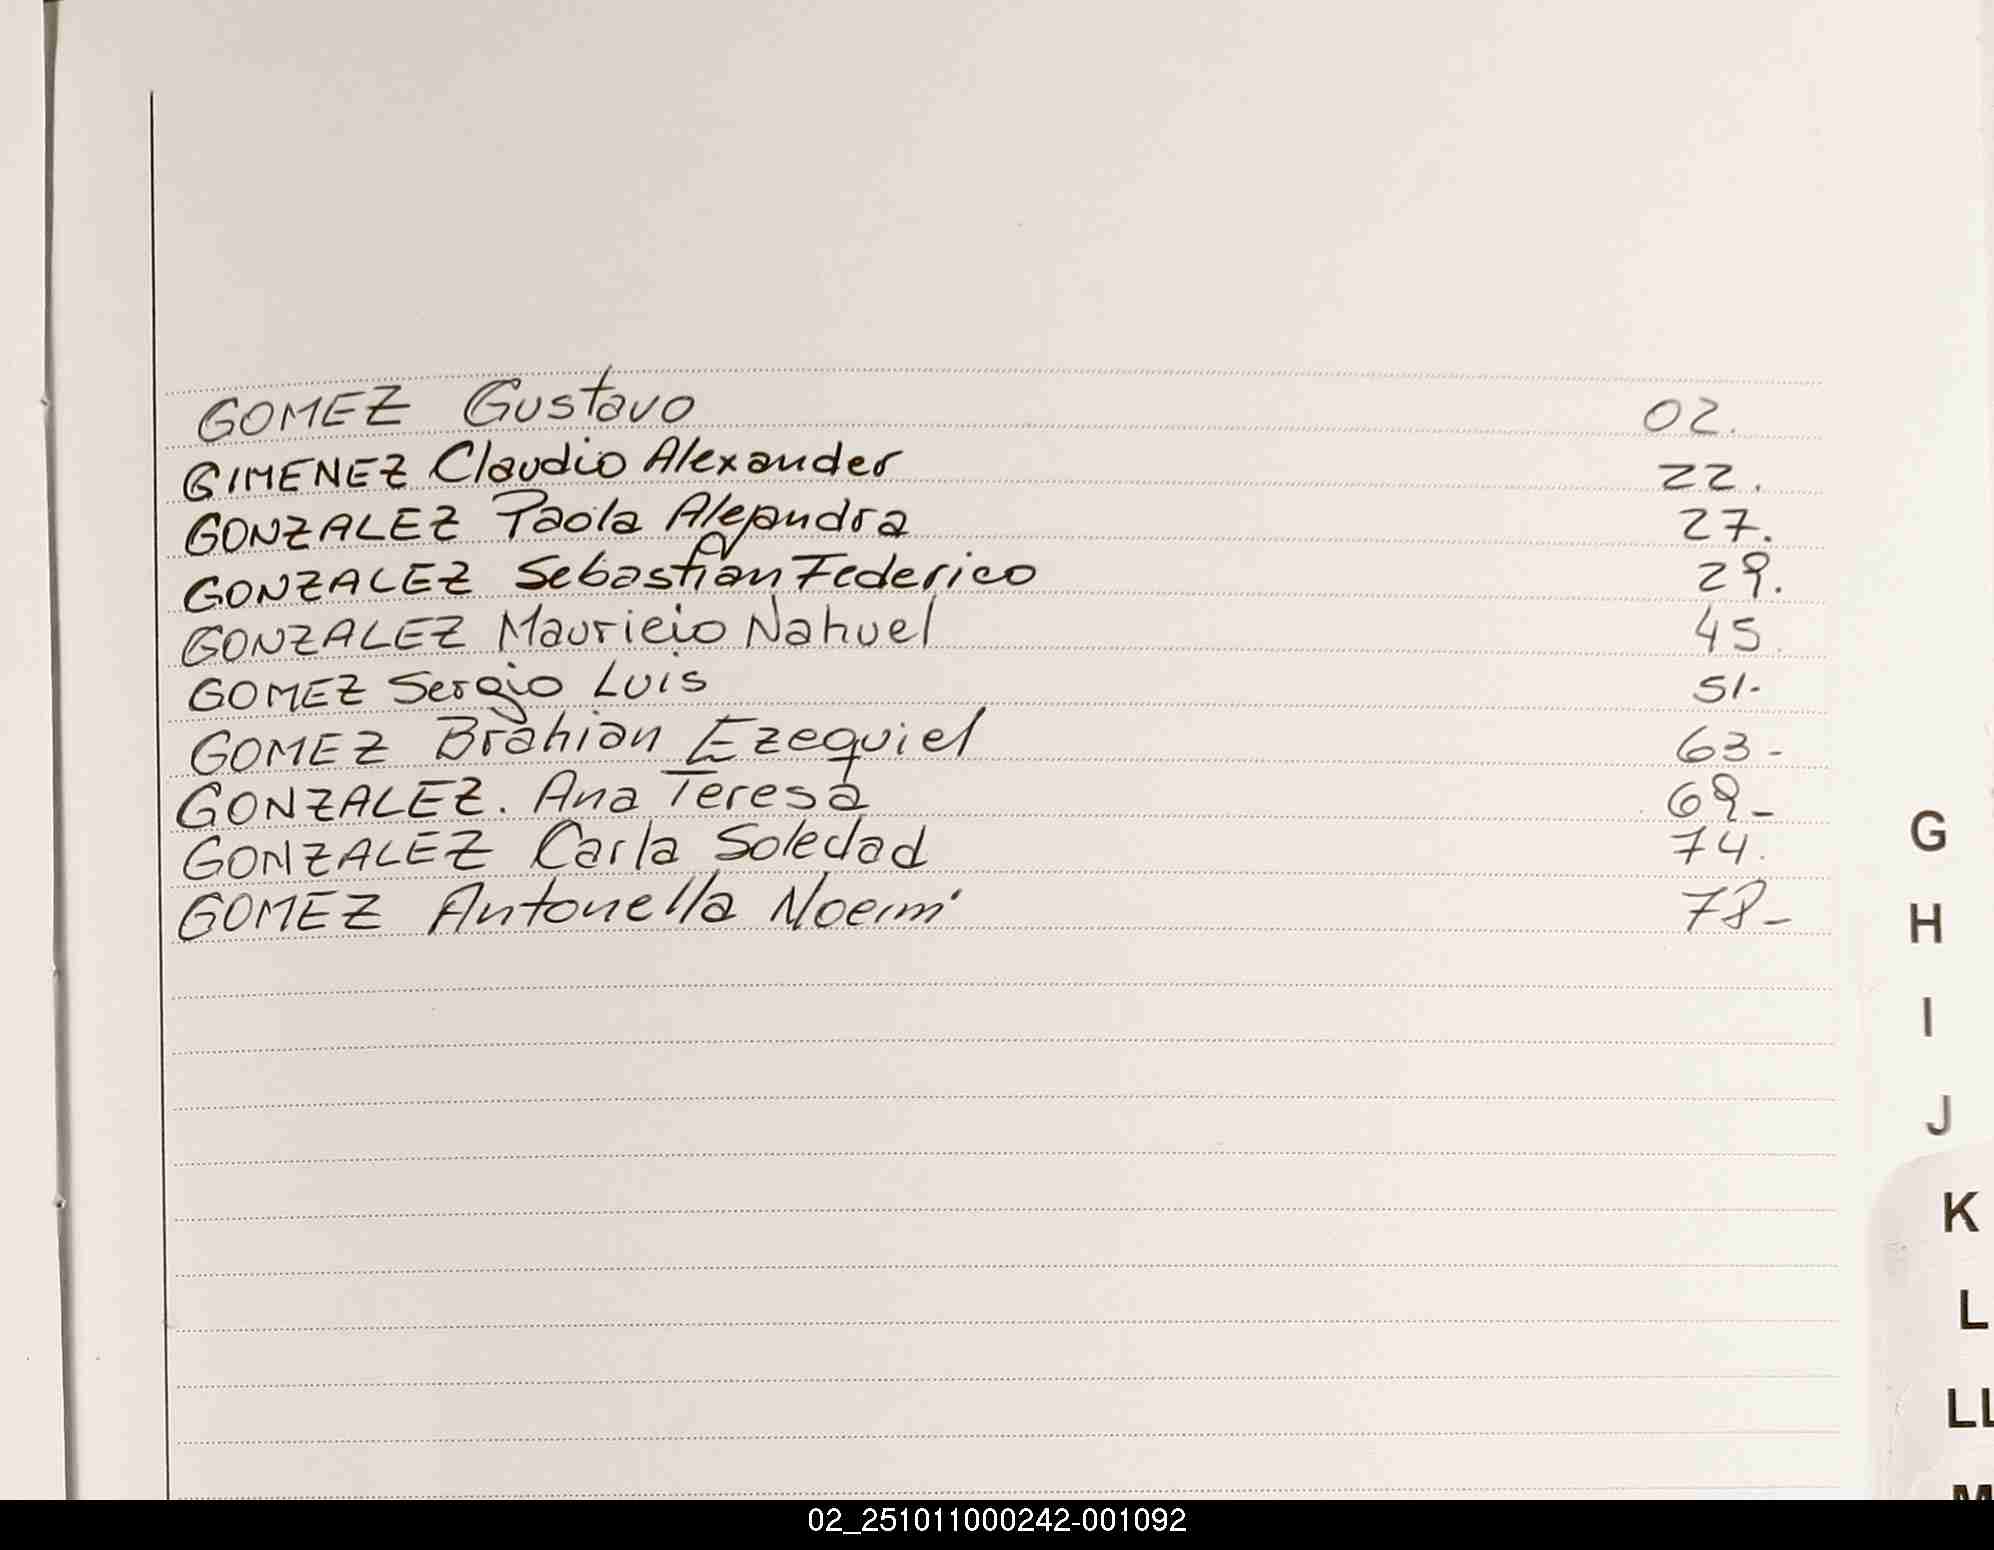 GOMEZ Gustavo 02.
GIMENEZ Claudio Alexander 22.
GONZALEZ Paola Alejandra 27.
GONZALEZ Sebastian Federico 29.
GONZALEZ Mauricio Nahuel 45.
GOMEZ Sergio Luis 51-
GOMEZ Brahian Ezequiel 63-
GONZALEZ. Ana Teresa 69-
GONZALEZ Carla Soledad 74.
GOMEZ Antonella Noemí 78-
G
H
I
J
K
L
LL
M
02_251011000242-001092